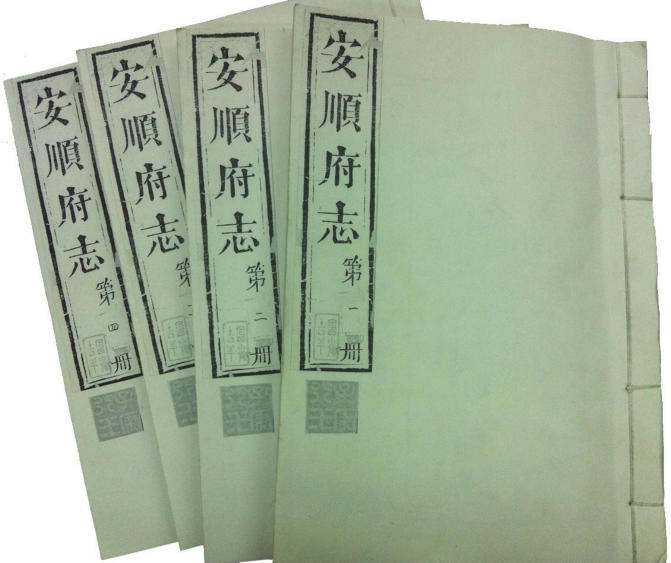 安順府志第一冊
安順府志第二冊
安順府志第
安順府志第四冊